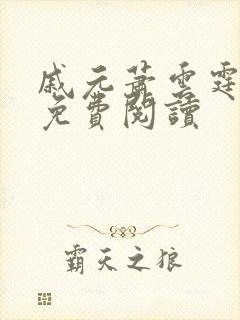 戚元蕭雲霆
免費閱讀
霸天之狼